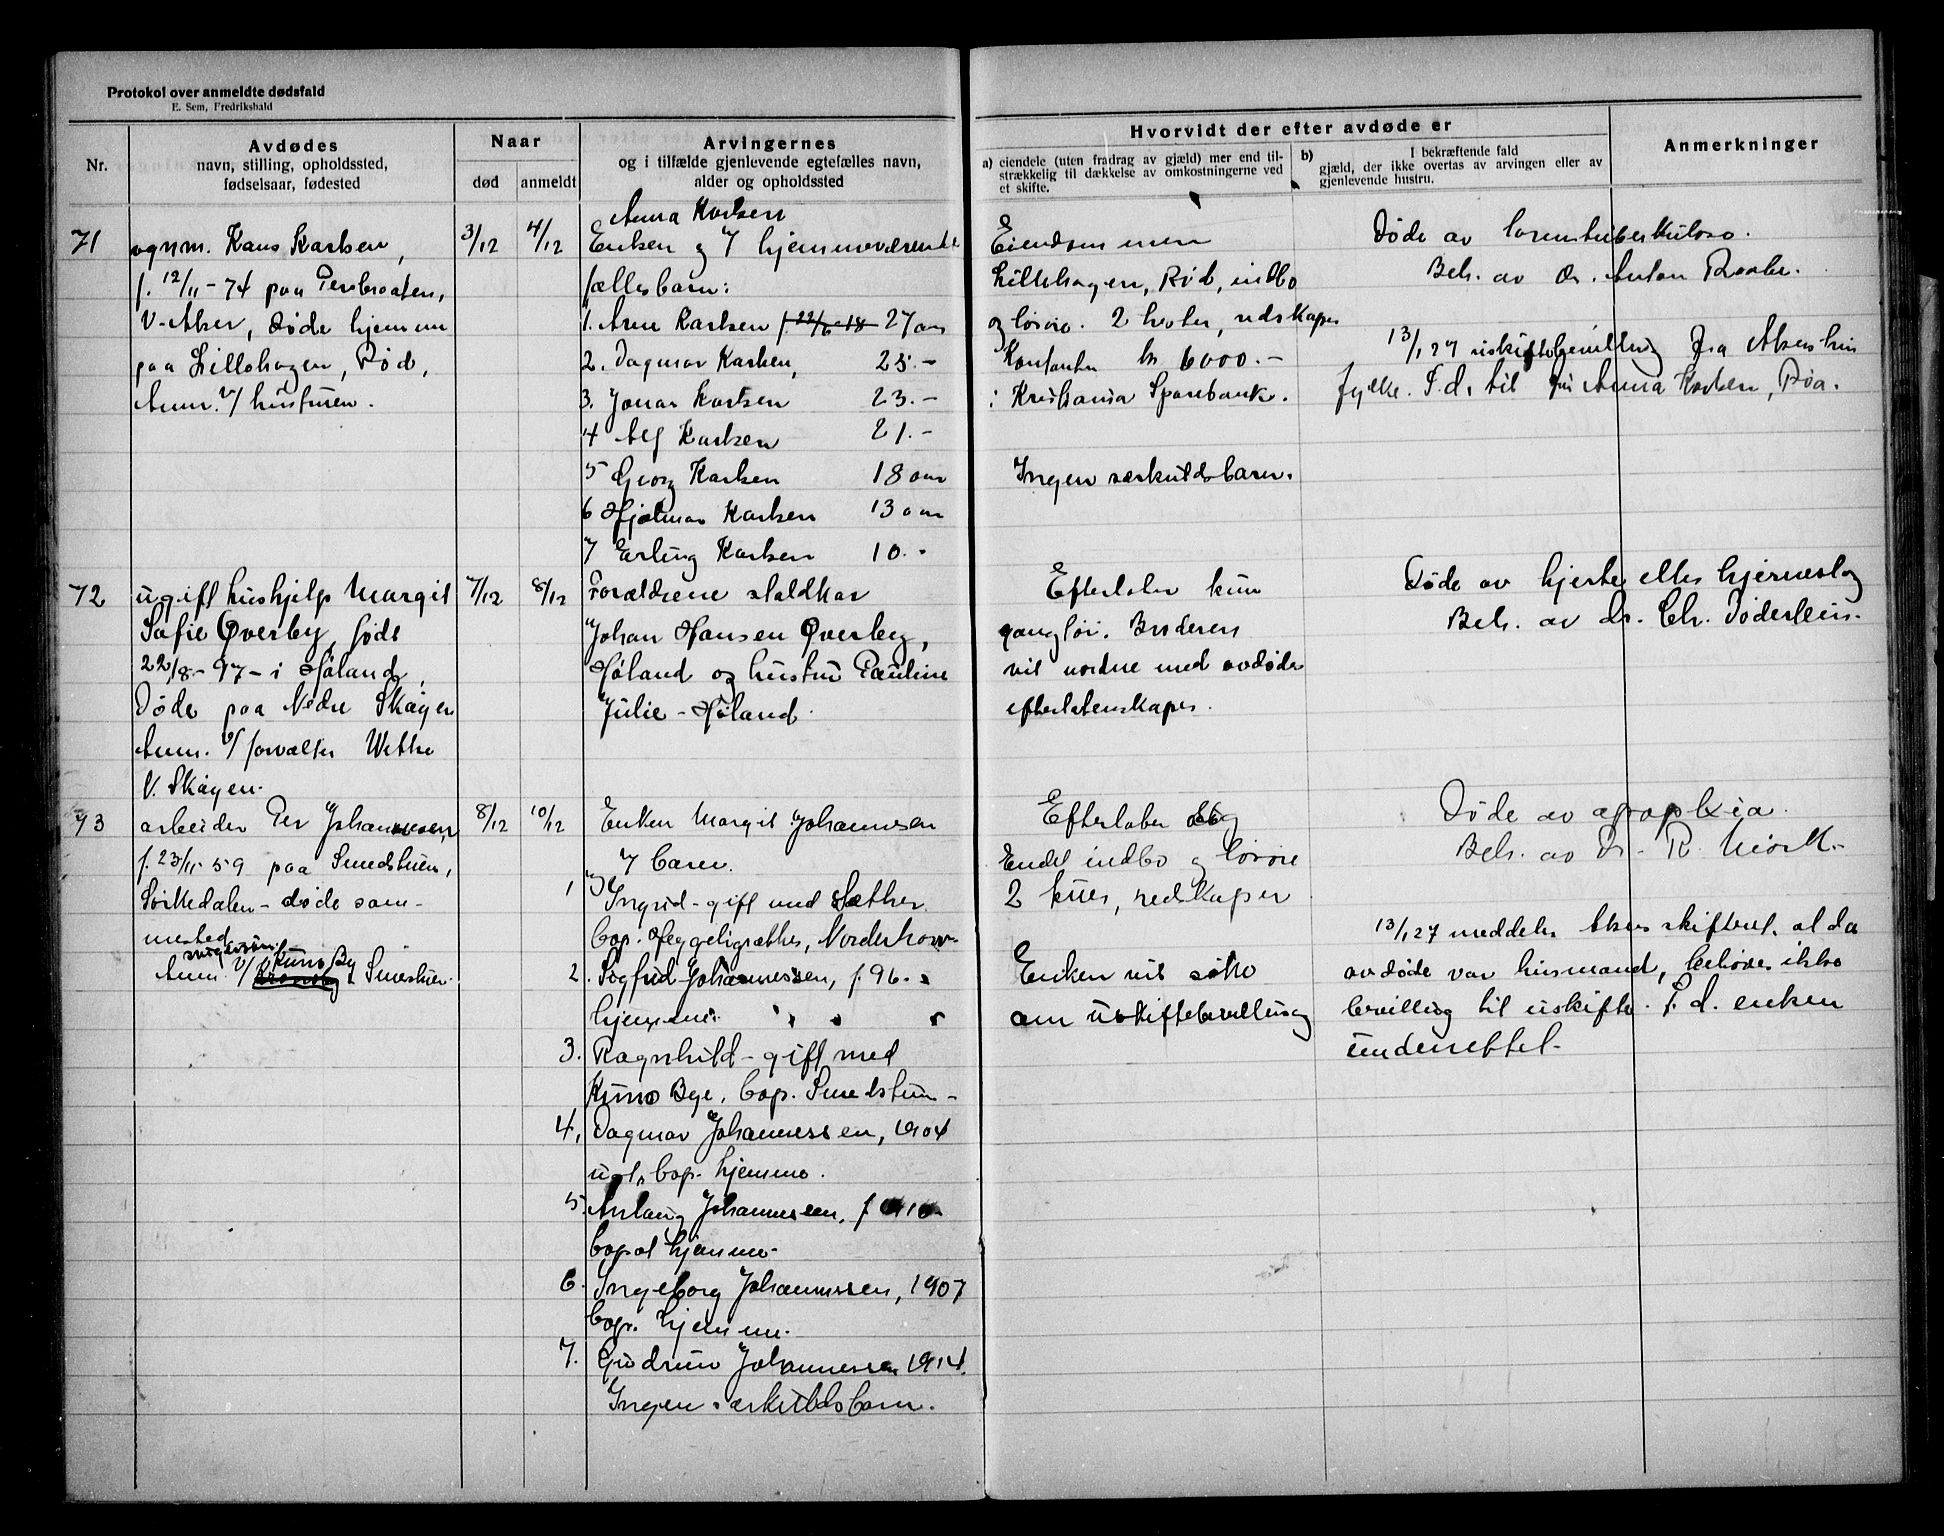 Protokol over anmeldte dødsfald
E. Sem, Fredrikshald
Nr.
Avdødes
navn, stilling, opholdssted,
fødselsaar, fødested
Naar
død
anmeldt
Arvingernes
og i tilfælde gjenlevende egtefælles navn,
alder og opholdssted
Hvorvidt der efter avdøde er
a) eiendele (uten fradrag av gjæld) mer end til-
strækkelig til dækkelse av omkostningerne ved
et skifte.
b) I bekræftende fald
gjæld, der ikke overtas av arvingen eller av
gjenlevende hustru.
Anmerkninger
71
ognm. Hans Karlsen,
f. 12/11 - 74 paa Persbraaten,
V. Aker, døde hjemme
paa Lillehagen, Røa,
Anm. v/ hustruen.
3/12
4/12
Anna Karlsen
Enken og 7 hjemmeværende
fællesbarn:
1. Arne Karlsen 27 aar
2. Dagmar Karlsen, 25.-
3. Jonas Karlsen 23.-
4 Alf Karlsen 21.-
5 Georg Karlsen 18 aar
6 Hjalmar Karlsen 13 aar
7 Erling Karlsen 10.-
Eiendommen
Lillehagen, Røa, indbo
og løsøre. 2 hester, redskaper
Kontanter kr 6000.-
i Kristiania Sparebank.
Ingen særkuldsbarn.
Døde av
Beh. av dr. Anton Raabe.
13/1 27 uskiftebevilling fra Akershus
fylke. S. d. til fru Anna Karlsen, Røa.
72
ugift hushjelp Margit
Sofie Øverby, født
22/8 - 97 - i Høland,
Døde paa Nedre Skøyen
Anm. v/ forvalter Wethe
V. Skøyen.
7/12
8/12
Forældrene staldkar
Johan Hansen Øverby,
Høland og hustru Pauline
Julie - Høland.
Efterlater kun
gangklær. Broderen
vil ordne med avdødes
efterlatenskaper.
Døde av hjerte eller hjerneslag
Beh. av dr. Chr. Døderlein.
73
arbeider Per Johannessen,
f. 23/11 59 paa Smedstuen,
Sørkedalen - døde sam-
mested
svigersøn
Anm. v/ Kuno Bye Smestuen.
8/12
10/12
Enken Margit Johannesen
7 barn.
1) Ingrid - gift med Sæther
bop. Heggeligrætha, Norderhov.
2. Sigfrid Johannessen, f. 96.
hjemme.
3. Ragnhild - gift med
Kuno Bye, bop. Smedstuen -
4. Dagmar Johannessen, 1904
ugt. bop. hjemme.
5. Aslaug Johannessen, f. 1910
bopat hjemme.
6. Ingeborg Johannessen, 1907
bop. hjemme.
7. Gudrun Johannessen 1914.
Ingen særkuldsbarn.
Efterlater
Endel indbo og løsøre
2 kuer, redskaper
Enken vil søke
om uskiftebevilling
Døde av apoplexia.
Beh. av Dr. R. Mörk.
13/1 27 meddeler Aker skifteret, at da
avdøde var husmand, behøves ikke
bevilling til uskifte. S. d. enken
underrettet.